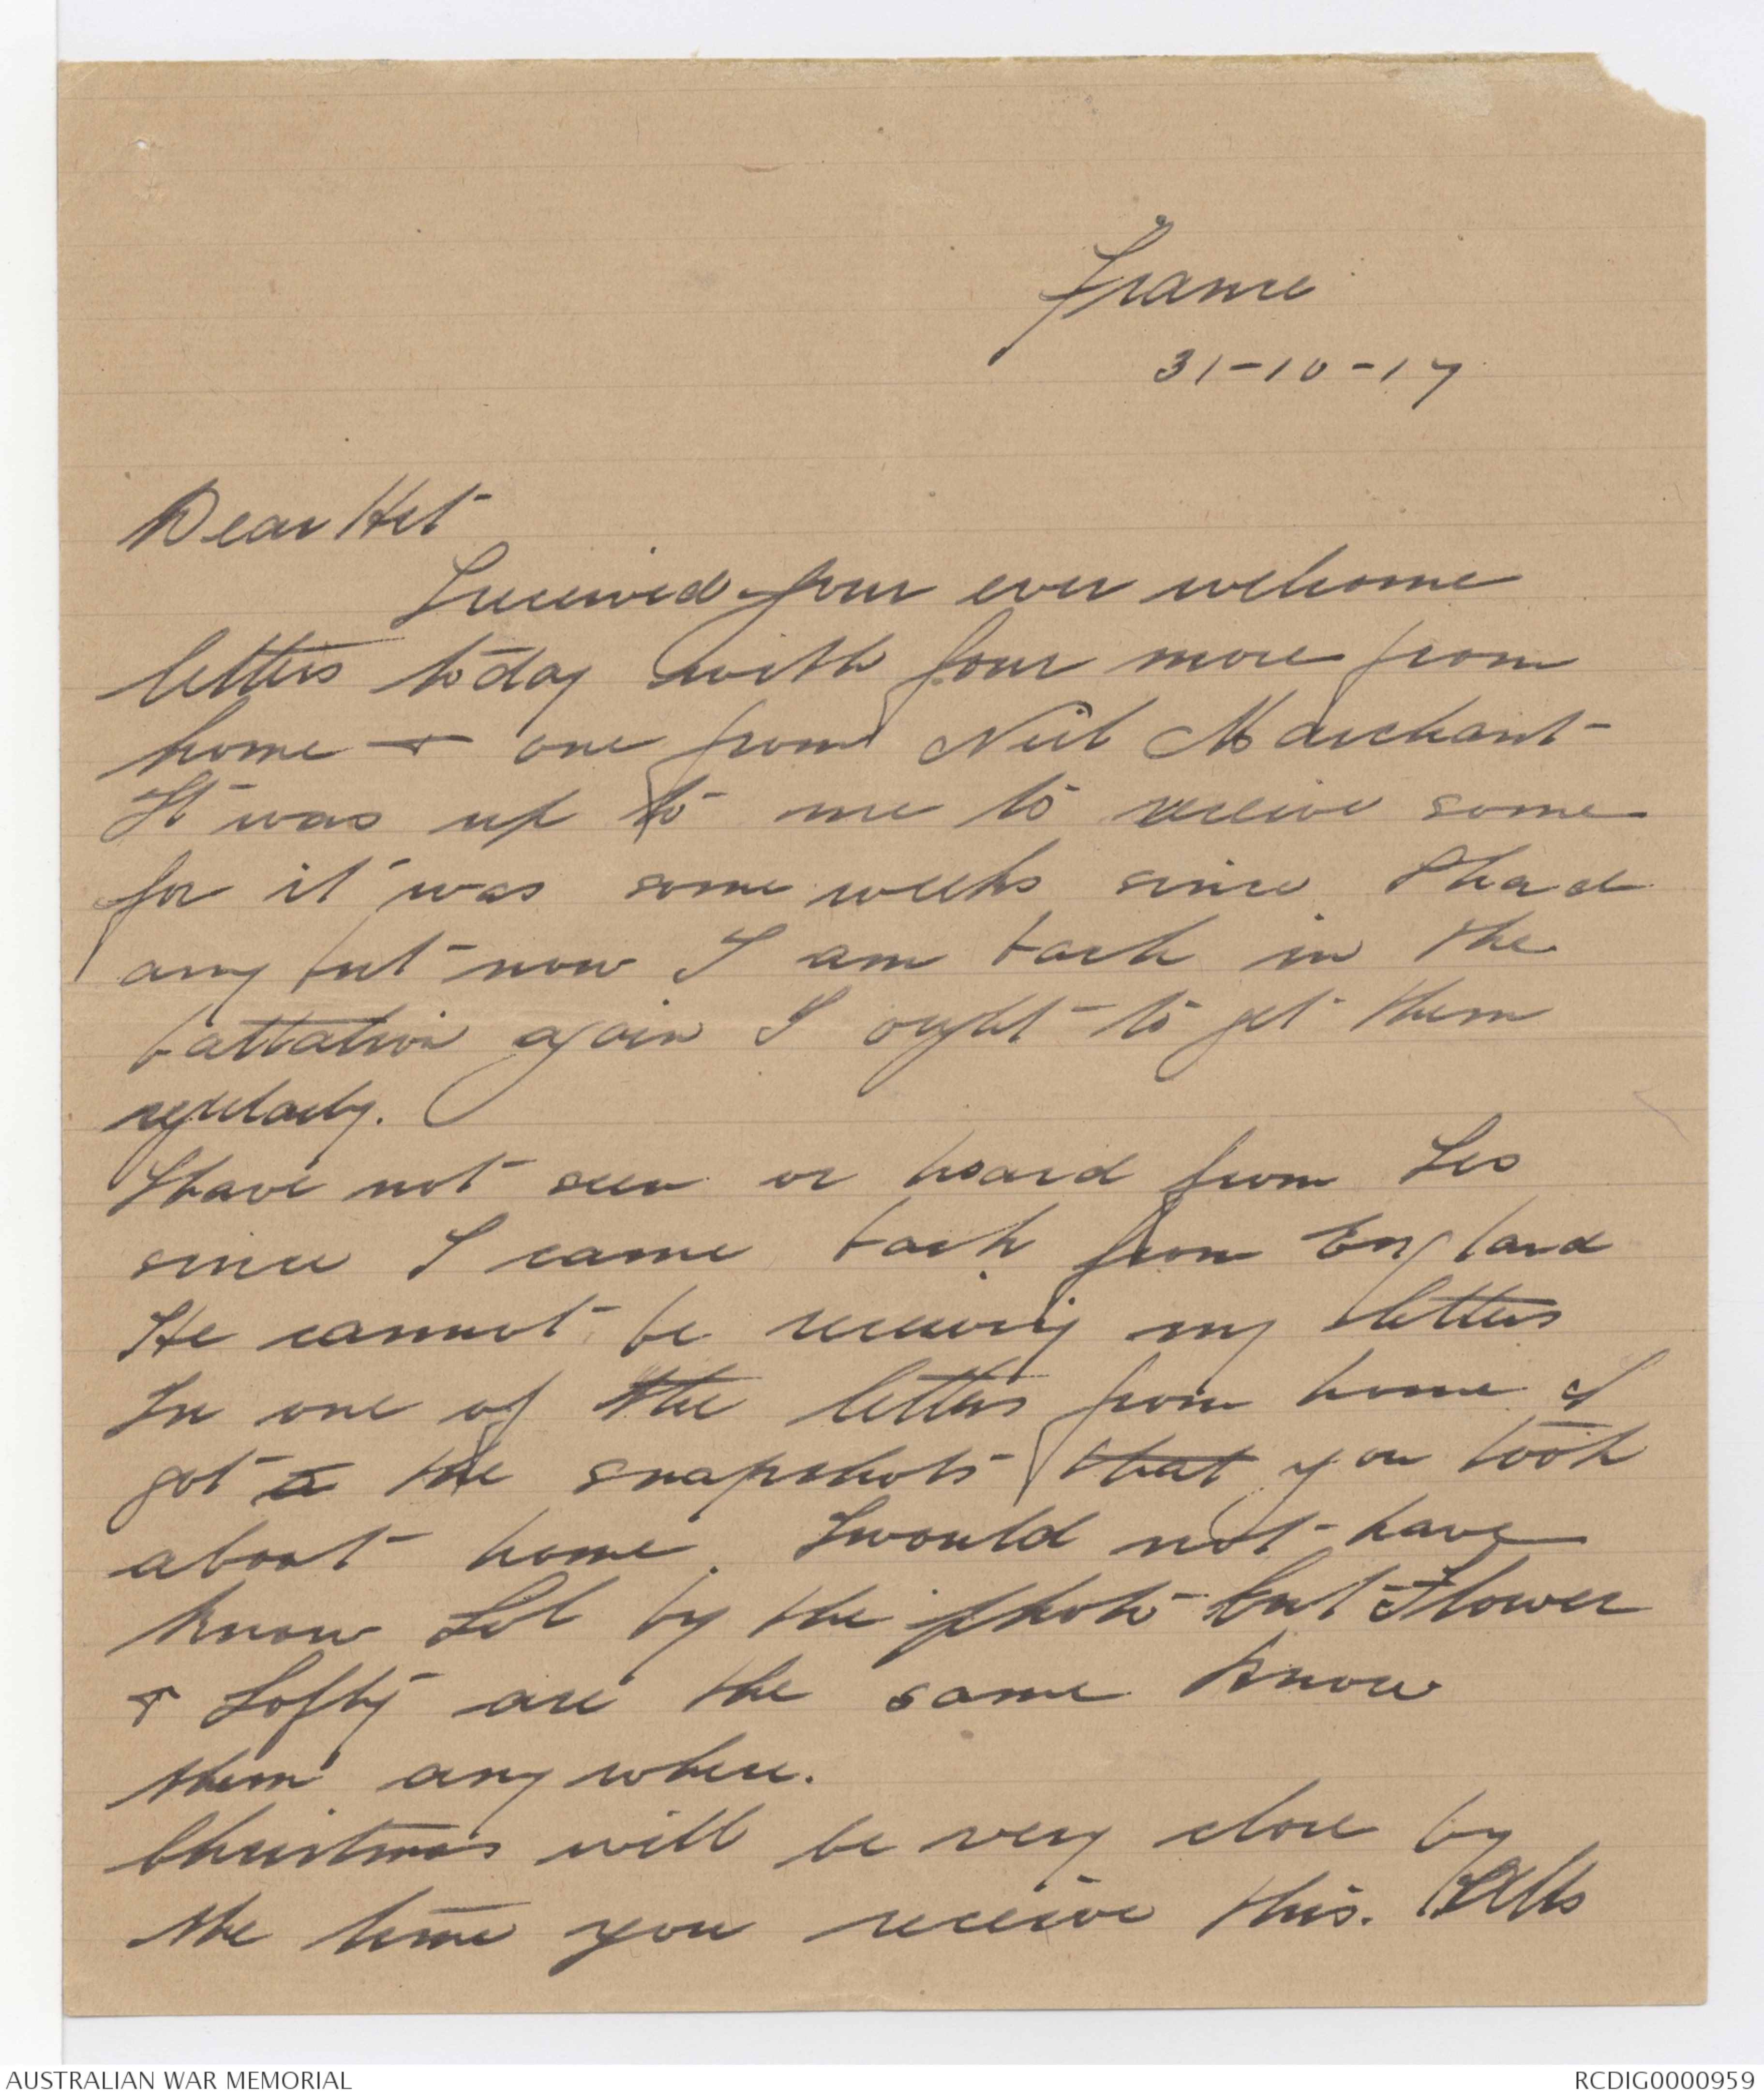 France
31-10-17
Dear Het
I received your ever welcome
letters today with four more from
home & one from Neil Marchant
It was up to me to receive some
for it was some weeks since I had
any but now I am back in the
battalion again I ought to get them
regularly.
I have not seen or heard from Les
since I came back from England
He cannot be receiving my letters
In one of the letters from home I
got a the snapshots that you took
about home. I would not have
know Lil by the photo but Flower
& Lofty are the same know
them any where.
Christmas will be very close by
the time you receive this.
AUSTRALIAN WAR MEMORIAL
RCDIG0000959